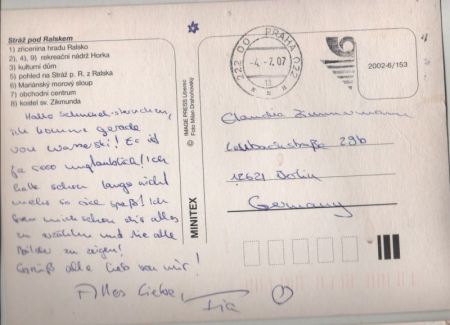 Stráž pod Ralskem
1) zřícenina hradu Ralsko
2), 4), 9) rekreační nádrž Horka
3) kulturní dům
5) pohled na Stráž p. R. z Ralska
6) Mariánský morový sloup
7) obchodní centrum
8) kostel sv. Zikmunda
Hallo
ich komme gerade
von ! Es ist
ja sooo unglaublich! Ich
hatte schon lange nicht
mehr so viel Spaß! Ich
freu mich schon dir alles
zu erzählen und die alle
Bilder zu zeigen!
Grüß alle lieb von mir!
Alles Liebe,
IMAGE PRESS Liberec
Foto Milan Drahoňovský
MINITEX
222 00 PRAHA 022
-4.-7.07
2002-6/153
Claudia Zimmermann
29b
12621 Berlin
Germany